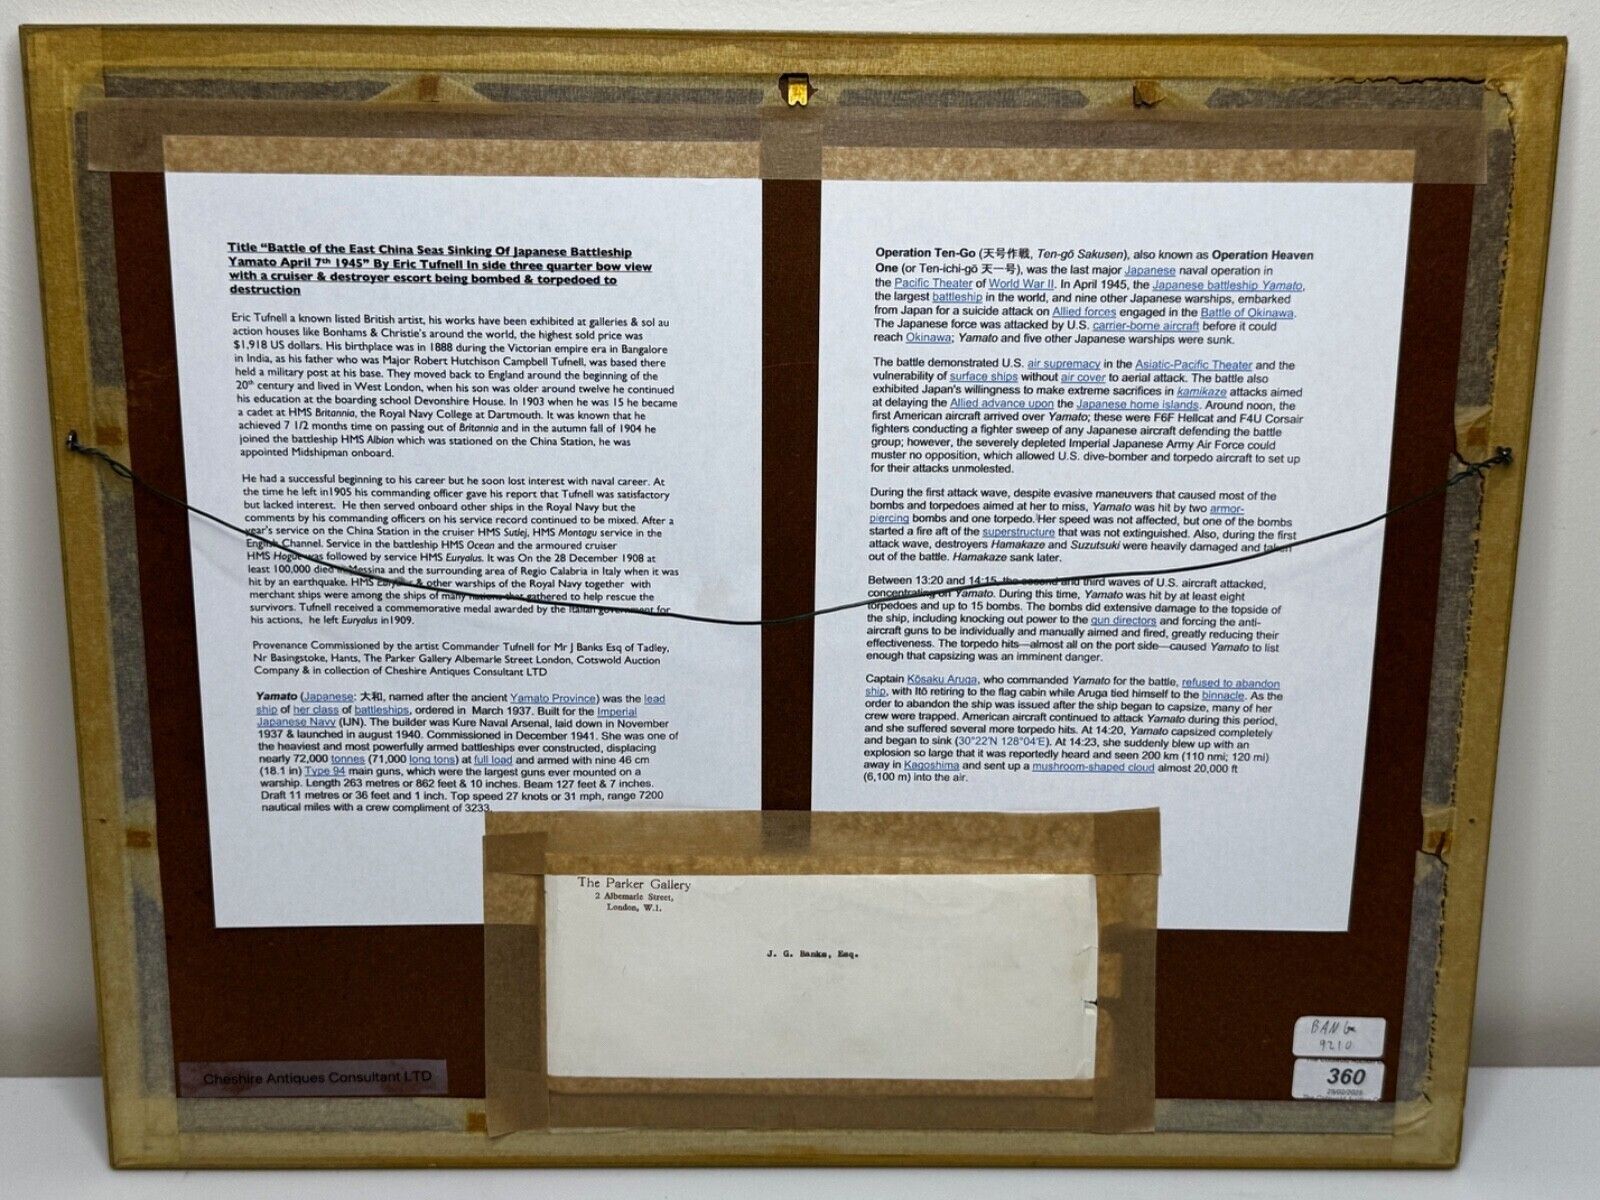 Title “Battle of the East China Seas Sinking Of Japanese Battleship
Yamato April 7th 1945” By Eric Tufnell In side three quarter bow view
with a cruiser & destroyer escort being bombed & torpedoed to
destruction
Eric Tufnell a known listed British artist, his works have been exhibited at galleries & sol au
action houses like Bonhams & Christie's around the world, the highest sold price was
$1,918 US dollars. His birthplace was in 1888 during the Victorian empire era in Bangalore
in India, as his father who was Major Robert Hutchison Campbell Tufnell, was based there
held a military post at his base. They moved back to England around the beginning of the
20th century and lived in West London, when his son was older around twelve he continued
his education at the boarding school Devonshire House. In 1903 when he was 15 he became
a cadet at HMS Britannia, the Royal Navy College at Dartmouth. It was known that he
achieved 7 1/2 months time on passing out of Britannia and in the autumn fall of 1904 he
joined the battleship HMS Albion which was stationed on the China Station, he was
appointed Midshipman onboard.
He had a successful beginning to his career but he soon lost interest with naval career. At
the time he left in1905 his commanding officer gave his report that Tufnell was satisfactory
but lacked interest. He then served onboard other ships in the Royal Navy but the
comments by his commanding officers on his service record continued to be mixed. After a
year's service on the China Station in the cruiser HMS Sutlej, HMS Montagu service in the
English Channel. Service in the battleship HMS Ocean and the armoured cruiser
HMS Hogue was followed by service HMS Euryalus. It was On the 28 December 1908 at
least 100,000 died in Messina and the surrounding area of Regio Calabria in Italy when it was
hit by an earthquake. HMS Euryalus & other warships of the Royal Navy together with
merchant ships were among the ships of many nations that gathered to help rescue the
survivors. Tufnell received a commemorative medal awarded by the Italian government for
his actions, he left Euryalus in1909.
Provenance Commissioned by the artist Commander Tufnell for Mr J Banks Esq of Tadley,
Nr Basingstoke, Hants, The Parker Gallery Albemarle Street London, Cotswold Auction
Company & in collection of Cheshire Antiques Consultant LTD
Yamato (Japanese: 大和, named after the ancient Yamato Province) was the lead
ship of her class of battleships, ordered in March 1937. Built for the Imperial
Japanese Navy (IJN). The builder was Kure Naval Arsenal, laid down in November
1937 & launched in august 1940. Commissioned in December 1941. She was one of
the heaviest and most powerfully armed battleships ever constructed, displacing
nearly 72,000 tonnes (71,000 long tons) at full load and armed with nine 46 cm
(18.1 in) Type 94 main guns, which were the largest guns ever mounted on a
warship. Length 263 metres or 862 feet & 10 inches. Beam 127 feet & 7 inches.
Draft 11 metres or 36 feet and 1 inch. Top speed 27 knots or 31 mph, range 7200
nautical miles with a crew compliment of 3233.
Operation Ten-Go (天号作戦, Ten-gō Sakusen), also known as Operation Heaven
One (or Ten-ichi-gō 天一号), was the last major Japanese naval operation in
the Pacific Theater of World War II. In April 1945, the Japanese battleship Yamato,
the largest battleship in the world, and nine other Japanese warships, embarked
from Japan for a suicide attack on Allied forces engaged in the Battle of Okinawa.
The Japanese force was attacked by U.S. carrier-borne aircraft before it could
reach Okinawa; Yamato and five other Japanese warships were sunk.
The battle demonstrated U.S. air supremacy in the Asiatic-Pacific Theater and the
vulnerability of surface ships without air cover to aerial attack. The battle also
exhibited Japan's willingness to make extreme sacrifices in kamikaze attacks aimed
at delaying the Allied advance upon the Japanese home islands. Around noon, the
first American aircraft arrived over Yamato; these were F6F Hellcat and F4U Corsair
fighters conducting a fighter sweep of any Japanese aircraft defending the battle
group; however, the severely depleted Imperial Japanese Army Air Force could
muster no opposition, which allowed U.S. dive-bomber and torpedo aircraft to set up
for their attacks unmolested.
During the first attack wave, despite evasive maneuvers that caused most of the
bombs and torpedoes aimed at her to miss, Yamato was hit by two armor-
piercing bombs and one torpedo. Her speed was not affected, but one of the bombs
started a fire aft of the superstructure that was not extinguished. Also, during the first
attack wave, destroyers Hamakaze and Suzutsuki were heavily damaged and taken
out of the battle. Hamakaze sank later.
Between 13:20 and 14:15, the second and third waves of U.S. aircraft attacked,
concentrating on Yamato. During this time, Yamato was hit by at least eight
torpedoes and up to 15 bombs. The bombs did extensive damage to the topside of
the ship, including knocking out power to the gun directors and forcing the anti-
aircraft guns to be individually and manually aimed and fired, greatly reducing their
effectiveness. The torpedo hits—almost all on the port side—caused Yamato to list
enough that capsizing was an imminent danger.
Captain Kōsaku Aruga, who commanded Yamato for the battle, refused to abandon
ship, with Itō retiring to the flag cabin while Aruga tied himself to the binnacle. As the
order to abandon the ship was issued after the ship began to capsize, many of her
crew were trapped. American aircraft continued to attack Yamato during this period,
and she suffered several more torpedo hits. At 14:20, Yamato capsized completely
and began to sink (30°22′N 128°04′E). At 14:23, she suddenly blew up with an
explosion so large that it was reportedly heard and seen 200 km (110 nmi; 120 mi)
away in Kagoshima and sent up a mushroom-shaped cloud almost 20,000 ft
(6,100 m) into the air.
The Parker Gallery
2 Albemarle Street,
London, W.1.
J. G. Banks, Esq.
Cheshire Antiques Consultant LTD
9210
360